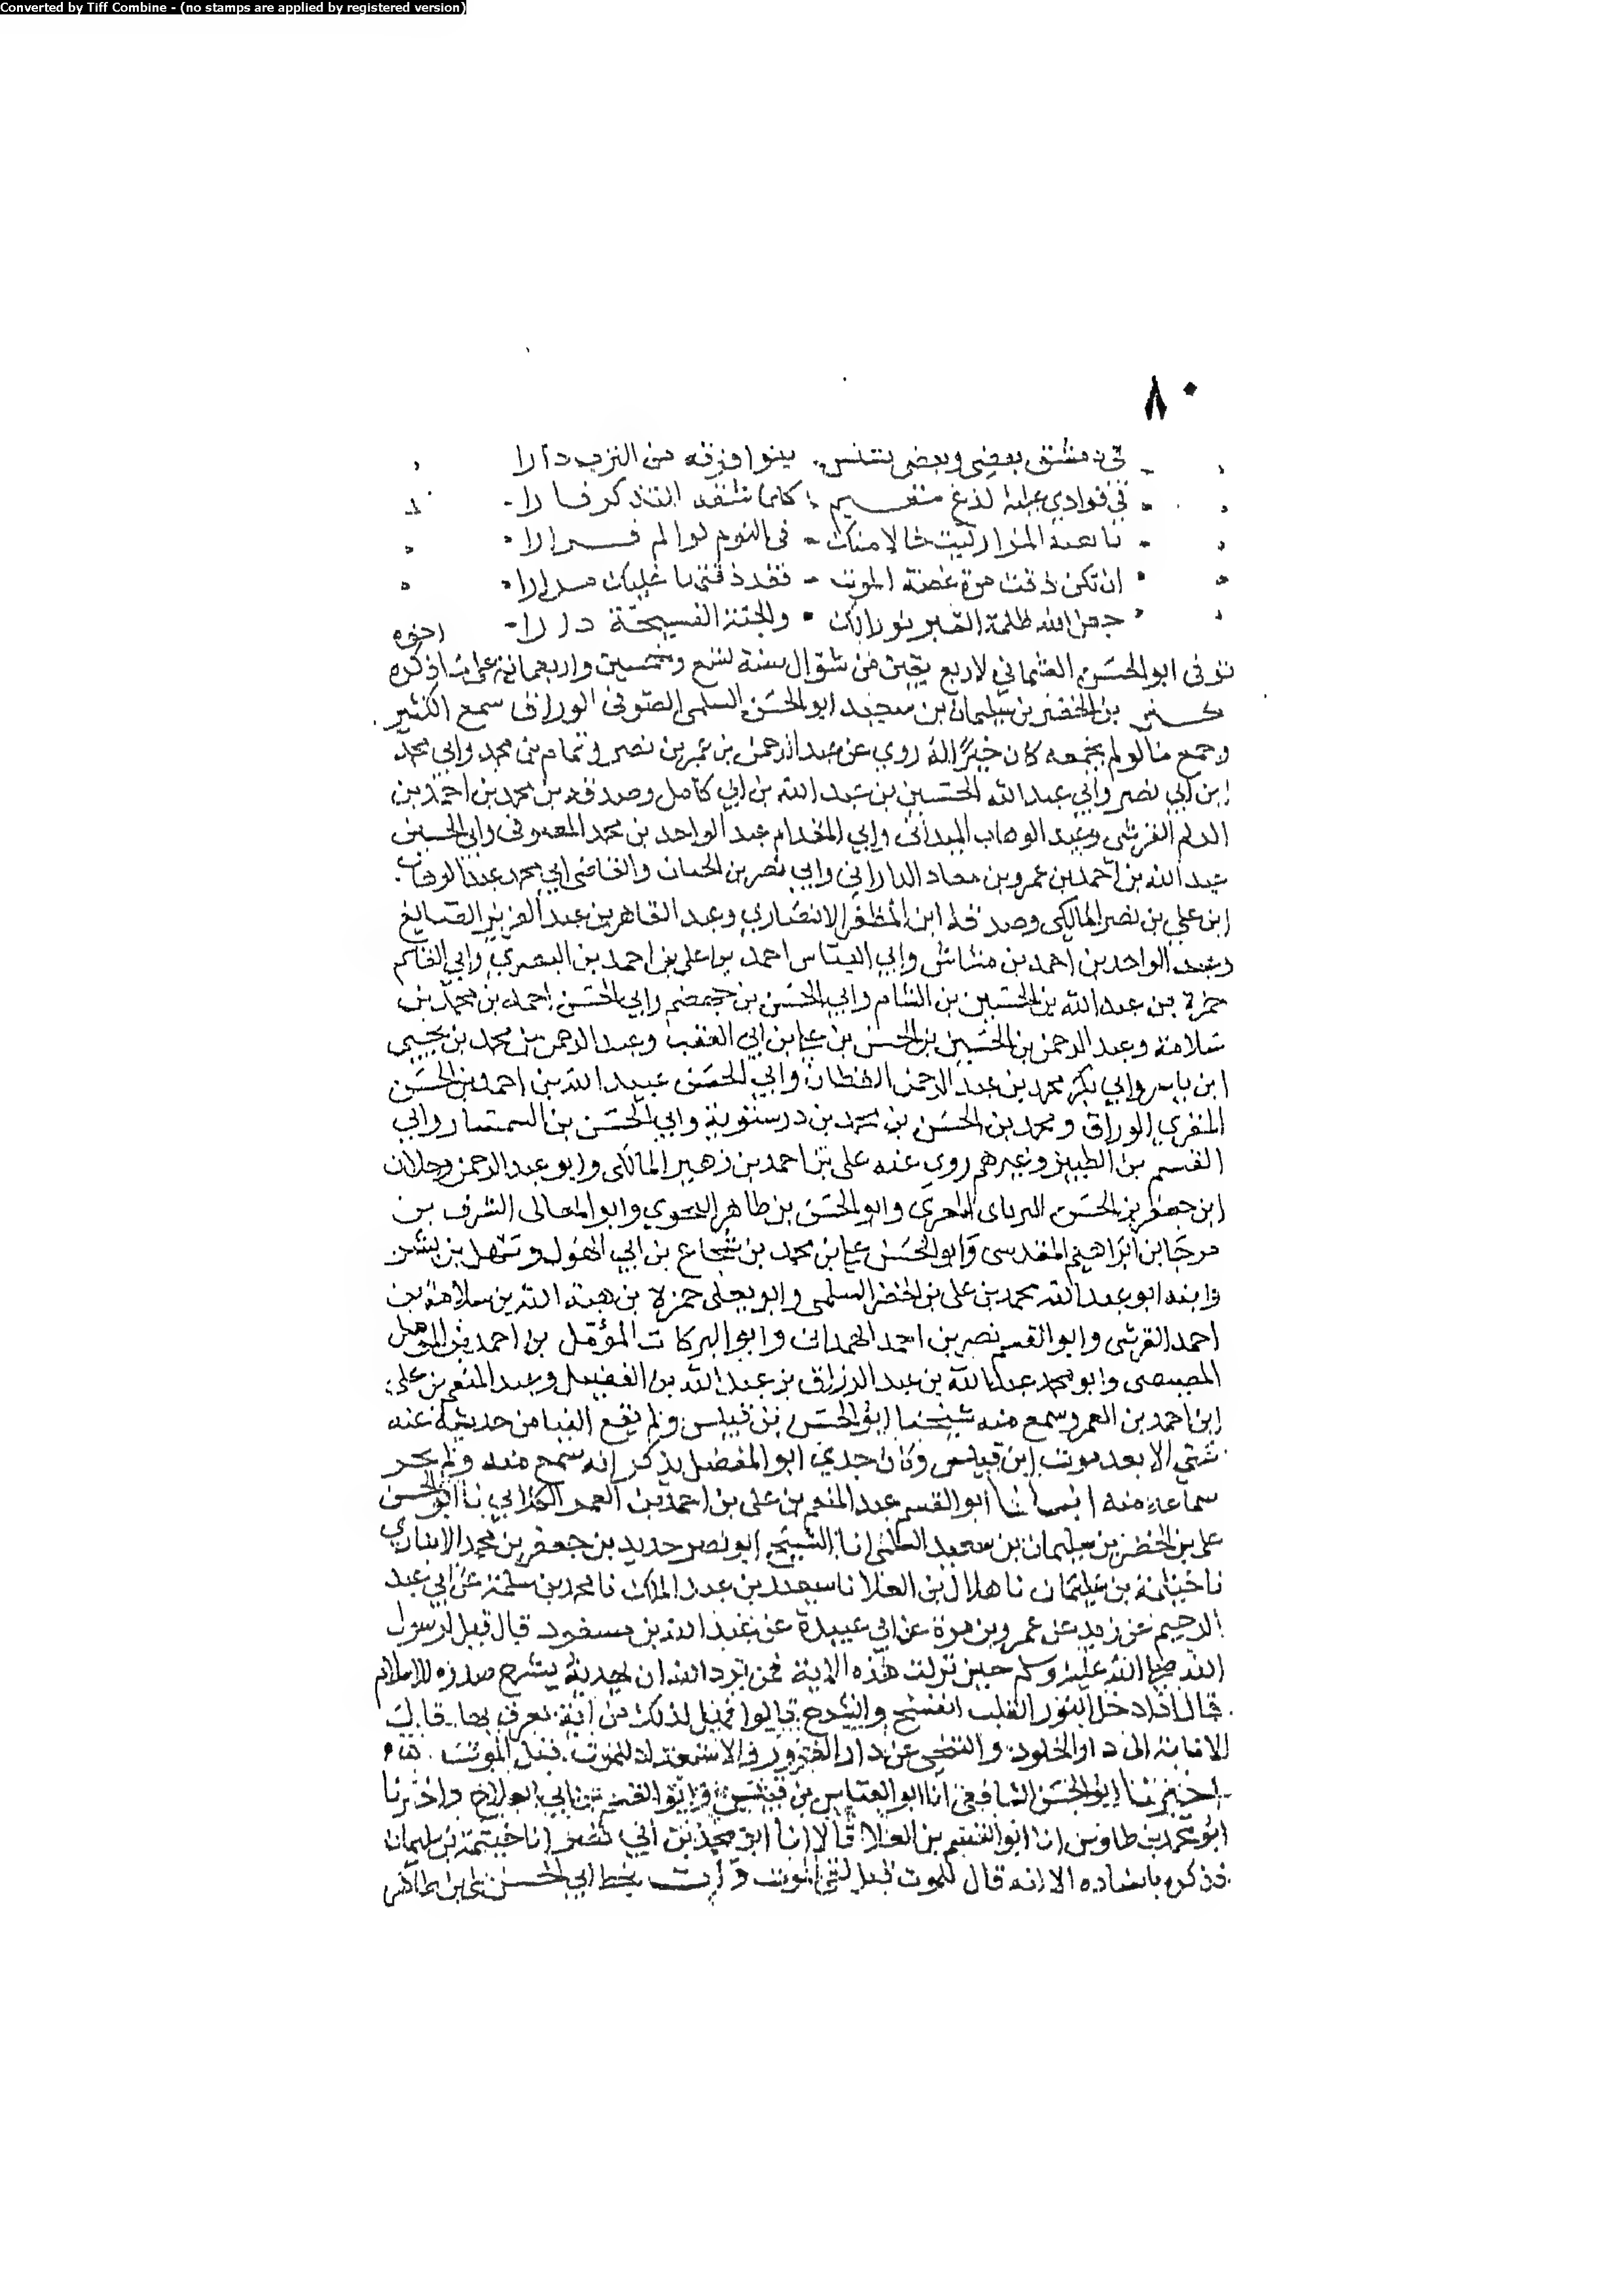 Converted by Tiff Combine - (no stamps are applied by registered version)
٨٠
في دمشق بعضي وبعض بتنس من الترب دارا
في فوادي لذع كلما التذكر فارا
المزار خالا منك في النوم لو الم
ان تكن ذقت مرة غصة الموت فقد ذقتها عليك مرارا
جعل الله ظلمة القبر نورا لك والجنة الفسيحة دارا اخره
توفي ابو الحسن العثماني لاربع بقين من شوال سنة تسع وخمسين واربعمائة على ما ذكره
بن الخضر بن سليمان بن سعيد ابو الحسن السلمي الصوفي الوراق سمع الكثير
وجمع ما لو لم يجمعه كان خيرا له روى عن عبد الرحمن بن عمر بن نصر وتمام بن محمد وابي محمد
ابن ابي نصر وابي عبد الله الحسين بن عبد الله بن ابي كامل وصدقة بن محمد بن احمد بن
الدلم القرشي وعبد الوهاب الميداني وابي عبد الواحد بن محمد وابي الحسين
عبد الله بن احمد بن عمرو بن معاد الداراني وابي نصر بن الجبان والقاضي ابي محمد عبد الوهاب
ابن علي بن نصر المالكي وصدقة ابن المظفر الانصاري وعبد القاهر بن عبد العزيز الصايغ
وعبد الواحد بن احمد بن مشاش وابي العباس احمد بن علي بن احمد بن البصري وابي القاسم
حمزة بن عبد الله بن الحسين بن الشام وابي الحسن بن جهضم وابي الحسن احمد بن محمد بن
سلامة وعبد الرحمن بن الحسين بن الحسن بن علي بن ابي العقب وعبد الرحمن بن محمد بن يحيى
ابن ياسر وابي بكر محمد بن عبد الرحمن القطان وابي الحسن عبيد الله بن احمد بن الحسن
المقري الوراق ومحمد بن الحسن بن محمد بن درستوية وابي الحسن بن السمسار وابي
القسم بن الطبيز وغيرهم روى عنه علي بن احمد بن زهير المالكي وابو عبد الرحمن
ابن جعفر بن الحسن وابو الحسن بن طاهر النحوي وابو المعالي الشرف بن
مرجا بن ابراهيم المقدسي وابو الحسن علي بن محمد بن شجاع بن ابي الهول وسهل بن بشر
وابنه ابو عبد الله محمد بن علي بن الخضر السلمي وابو يعلى حمزة بن هبة الله بن سلامة بن
احمد القرشي وابو القسم نصر بن احمد الهمداني وابو البركات المؤمل بن احمد بن المؤمل
المصيصي وابو محمد عبد الله بن عبد الرزاق بن عبد الله بن الفضيل وعبد المنعم بن علي
ابن احمد بن الغمر وسمع منه شيخنا ابو الحسن بن قبيس ولم يقع الينا من حديثه عنه
شي الا بعد موت ابن قبيس وكان جدي ابو المفضل يذكر انه سمع منه ولم
سماعه منه انبانا ابو القسم عبد المنعم بن علي بن احمد بن الغمر الكلابي نا ابو الحسن
علي بن الخضر بن سليمان بن سعيد السلمي انا الشيخ ابو نصر حديد بن جعفر بن محمد الانباري
نا خيثمة بن سليمان نا هلال بن العلا نا سعيد بن عبد الملك نا محمد بن سلمة عن ابي عبد
الرحيم عن زيد عن عمرو بن مرة عن ابي عبيدة عن عبد الله بن مسعود قال قيل لرسول
الله صلى الله عليه وسلم حين نزلت هذه الاية فمن يرد الله ان يهديه يشرح صدره للاسلام
قال اذا دخل النور القلب انفسح وانشرح قالوا فهل لذلك من اية يعرف بها قال
الانابة الى دار الخلود والتنحي عن دار الغرور والاستعداد للموت قبل الموت
اخبرنا ابو الحسن الشافعي انا ابو العباس بن قبيس وابو القسم بن ابي العلاء واخبرنا
ابو محمد بن طاوس انا ابو القسم بن العلا قالا انا ابو محمد بن ابي نصر انا خيثمة بن سليمان
فذكره باسناده الا انه قال للموت قبل لقي الموت قرأت بخط ابي الحسن علي بن طاهر